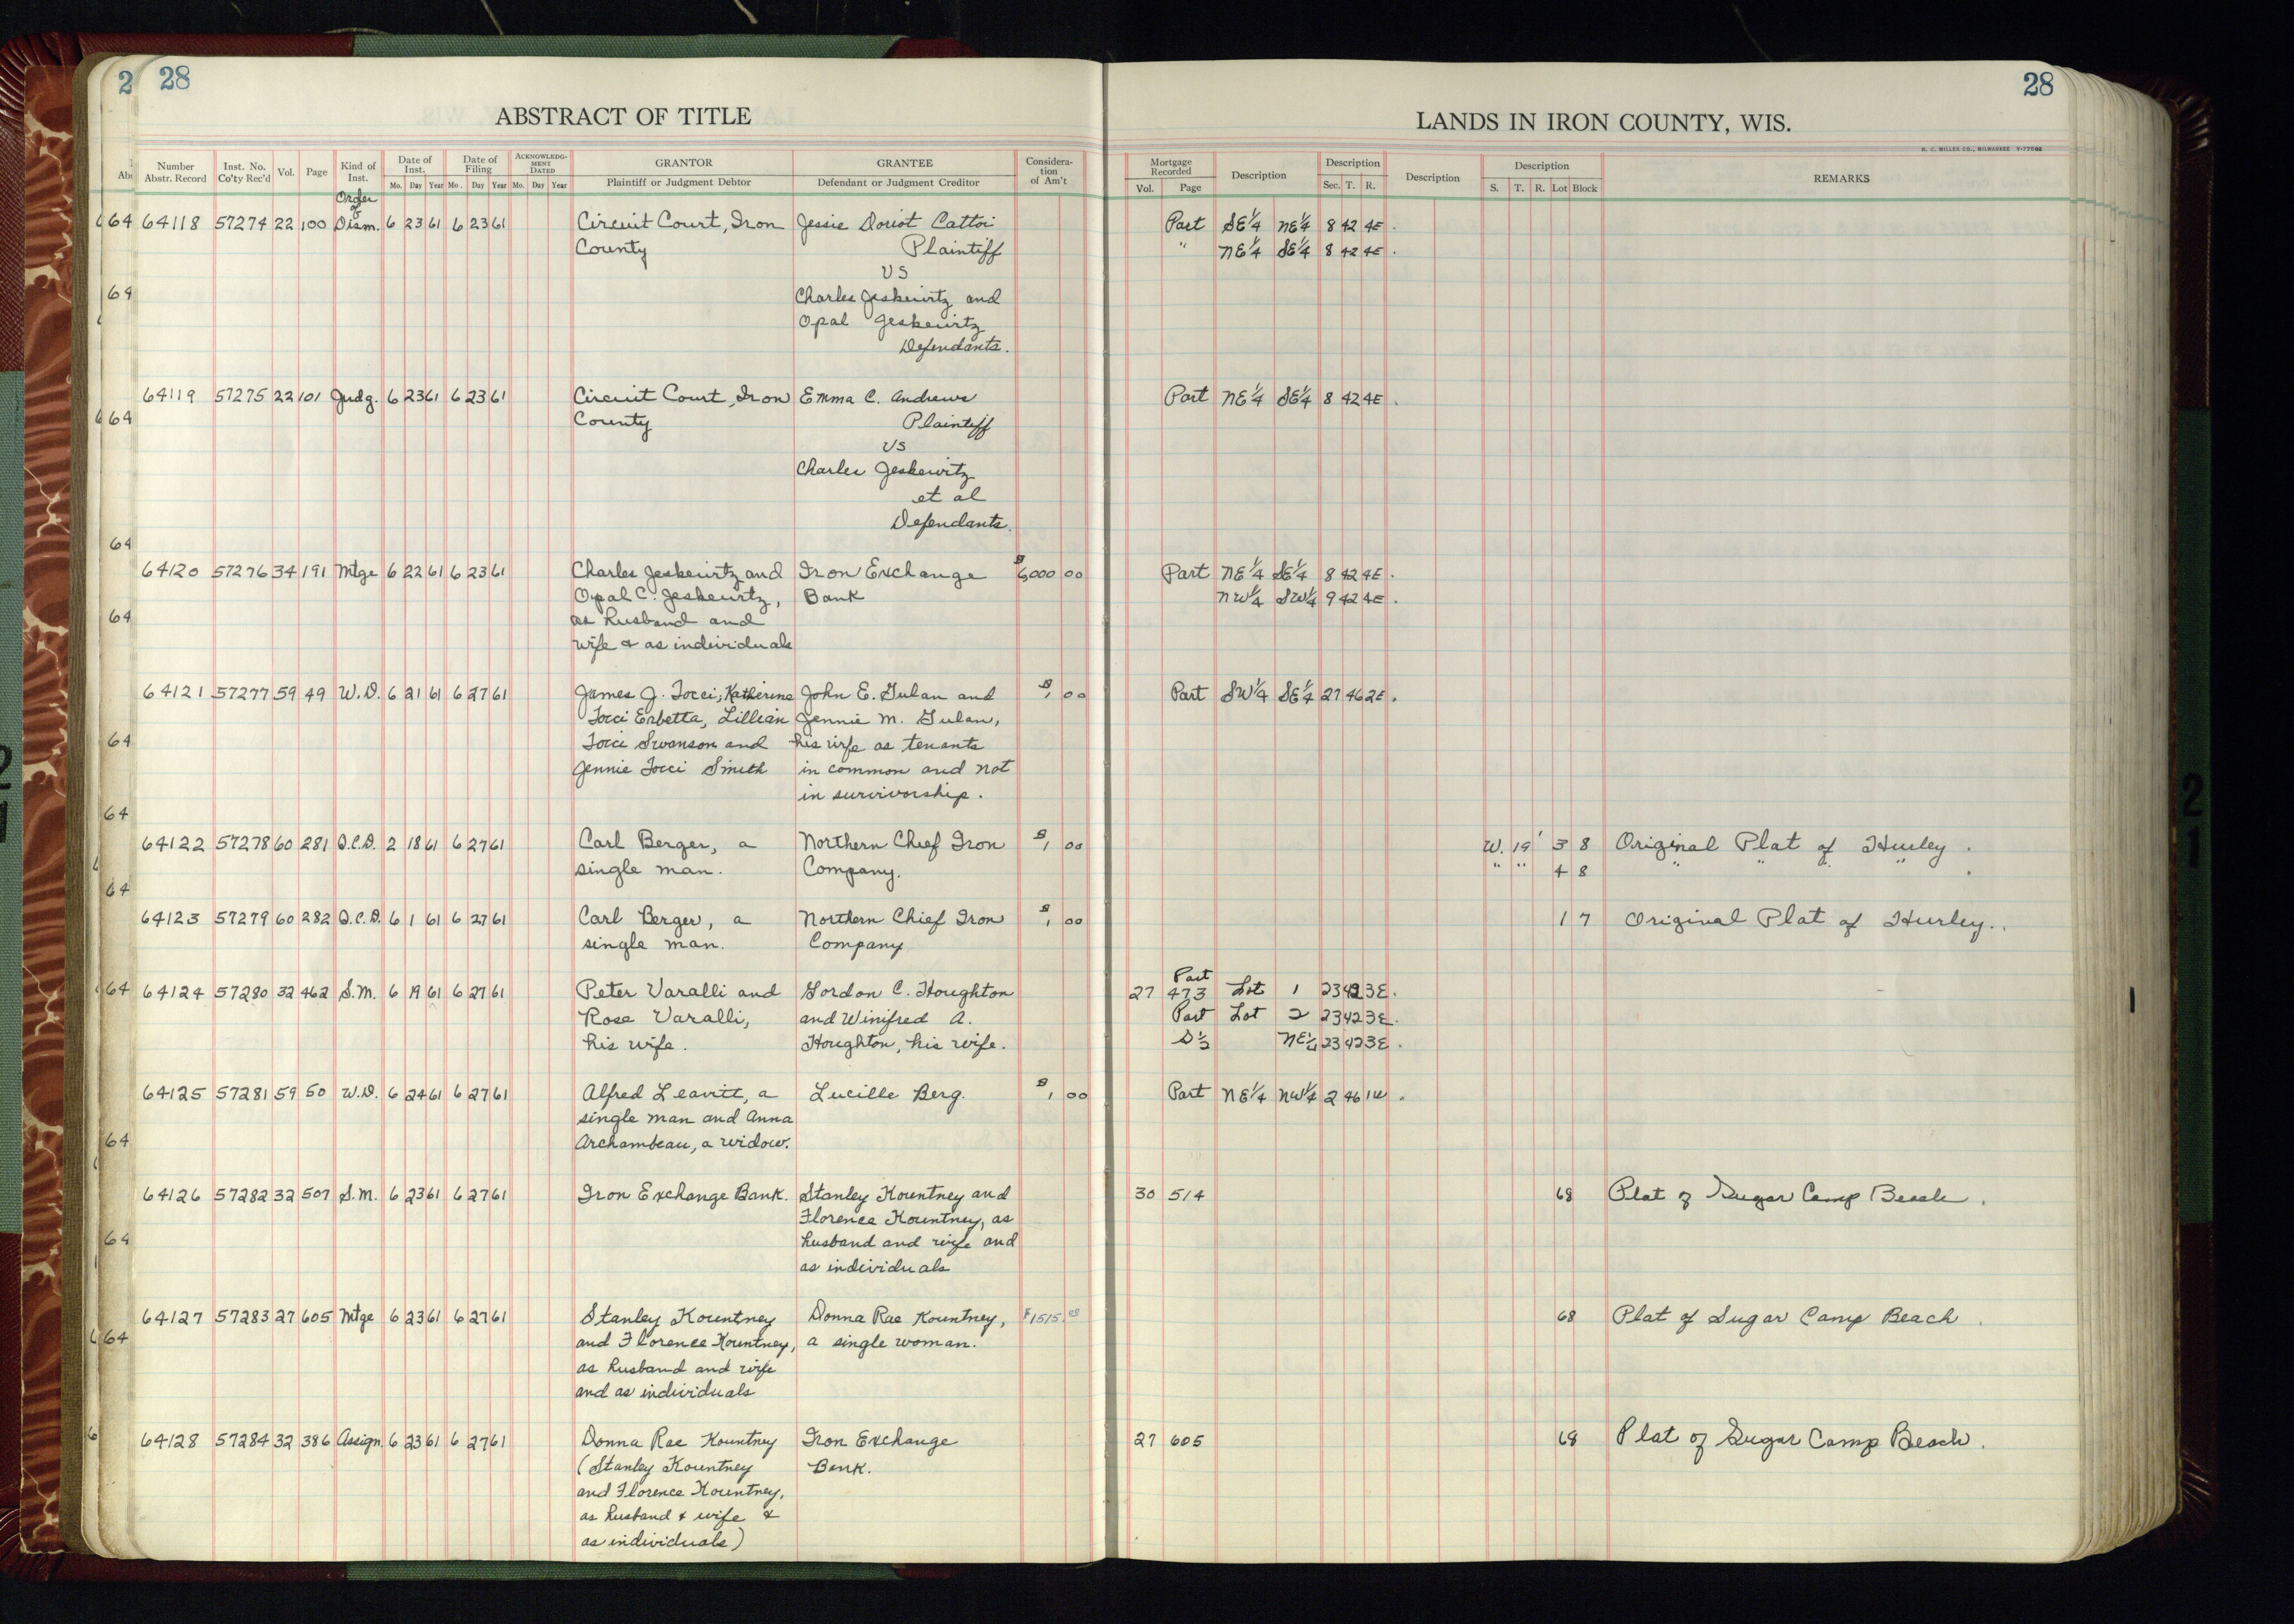 2 28
ABSTRACT OF TITLE
Number Abstr. Record Inst. No. Co'ty Rec'd Vol. Page Kind of Inst. Date of Inst. Date of Filing ACKNOWLEDGMENT DATED GRANTOR GRANTEE Consideration of Am't
Mo. Day Year Mo. Day Year Mo. Day Year Plaintiff or Judgment Debtor Defendant or Judgment Creditor
Order
of
64118 57274 22 100 Dism. 6 23 61 6 23 61 Circuit Court, Iron Jessie Doriot Cattoi
County Plaintiff
VS
Charles Jeskewitz and
Opal Jeskewitz
Defendants.
64119 57275 22 101 Judg. 6 23 61 6 23 61 Circuit Court, Iron Emma C. Andrews
County Plaintiff
VS
Charles Jeskewitz
et al
Defendants.
64120 57276 34 191 Mtge 6 22 61 6 23 61 Charles Jeskewitz and Iron Exchange $6,000 00
Opal C. Jeskewitz, Bank
as husband and
wife & as individuals
64121 57277 59 49 W.D. 6 21 61 6 27 61 James J. Tocci; Katherine John E. Gulan and $1, 00
Tocci Erbetta, Lillian Jennie M. Gulan,
Tocci Swanson and his wife as tenants
Jennie Tocci Smith in common and not
in survivorship.
64122 57278 60 281 Q.C.D. 2 18 61 6 27 61 Carl Berger, a Northern Chief Iron $1, 00
single man. Company.
64123 57279 60 282 Q.C.D. 6 1 61 6 27 61 Carl Berger, a Northern Chief Iron $1, 00
single man. Company
64124 57280 32 462 S.M. 6 19 61 6 27 61 Peter Varalli and Gordon C. Houghton
Rose Varalli, and Winifred A.
his wife. Houghton, his wife.
64125 57281 59 50 W.D. 6 24 61 6 27 61 Alfred Leavitt, a Lucille Berg. $1 00
single man and Anna
Archambeau, a widow.
64126 57282 32 507 S.M. 6 23 61 6 27 61 Iron Exchange Bank. Stanley Kountney and
Florence Kountney, as
husband and wife and
as individuals
64127 57283 27 605 Mtge 6 23 61 6 27 61 Stanley Kountney Donna Rae Kountney, $1515.
and Florence Kountney, a single woman.
as husband and wife
and as individuals
64128 57284 32 386 Assign. 6 23 61 6 27 61 Donna Rae Kountney Iron Exchange
(Stanley Kountney Bank.
and Florence Kountney,
as husband & wife &
as individuals)
28
LANDS IN IRON COUNTY, WIS.
H. C. MILLER CO., MILWAUKEE Y-77562
Mortgage Recorded Description Description Description Description REMARKS
Vol. Page Sec. T. R. S. T. R. Lot Block
Part SE¼ NE¼ 8 42 4E.
" NE¼ SE¼ 8 42 4E.
Part NE¼ SE¼ 8 42 4E.
Part NE¼ SE¼ 8 42 4E.
NW¼ SW¼ 9 42 4E.
Part SW¼ SE¼ 27 46 2E.
W. 19' 3 8 Original Plat of Hurley.
" " 4 8 " " " "
1 7 Original Plat of Hurley.
Part
27 473 Lot 1 23 42 3E.
Part Lot 2 23 42 3E.
S½ NE¼ 23 42 3E.
Part NE¼ NW¼ 2 46 1W.
30 514 68 Plat of Sugar Camp Beach.
68 Plat of Sugar Camp Beach.
27 605 68 Plat of Sugar Camp Beach.